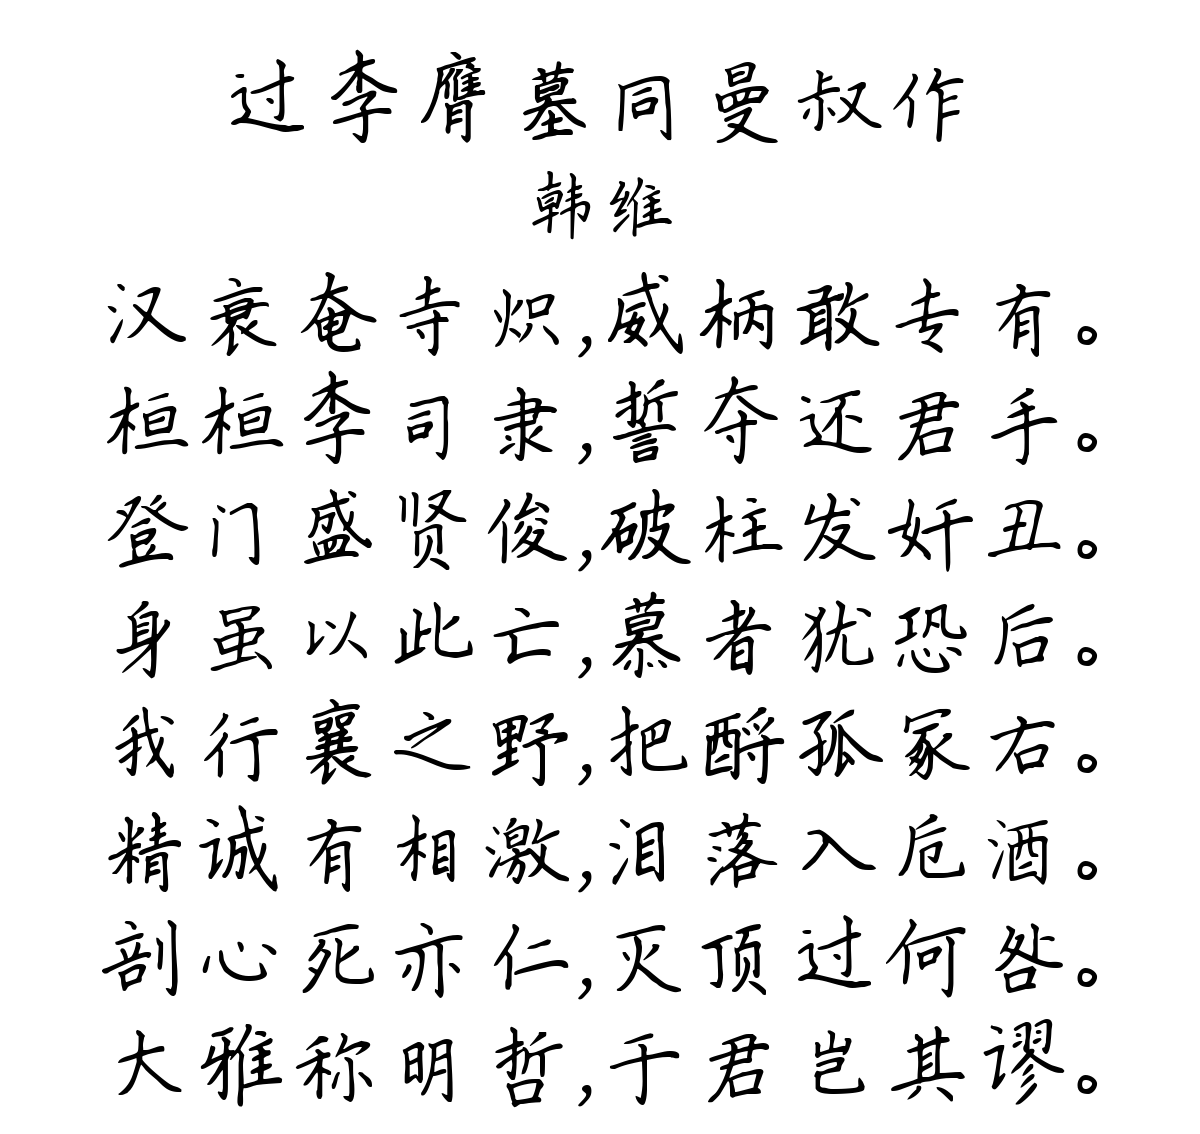 过李膺墓同曼叔作
韩维
汉衰奄寺炽,威柄敢专有。
桓桓李司隶,誓夺还君手。
登门盛贤俊,破柱发奸丑。
身虽以此亡,慕者犹恐后。
我行襄之野,把酹孤冢右。
精诚有相激,泪落入卮酒。
剖心死亦仁,灭顶过何咎。
大雅称明哲,于君岂其谬。